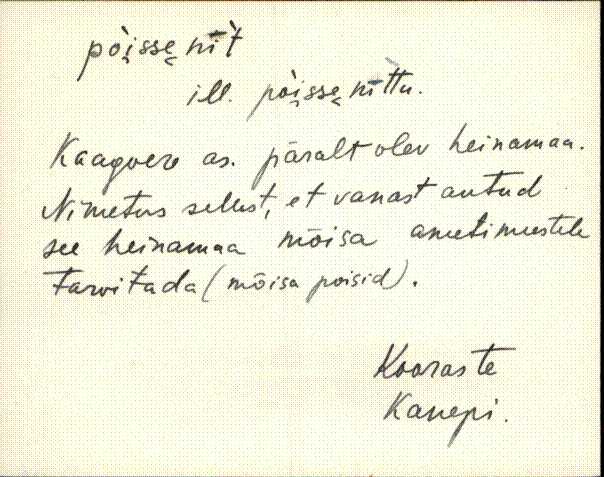 pòi̯ssę nìt
ill. pòi̯ssę nìttu.
Kaagvere as. päralt olev heinamaa.
Nimetus sellest, et vanast antud
see heinamaa mõisa ametimeestele
tarvitada (mõisa poisid).
Kooraste
Kanepi.